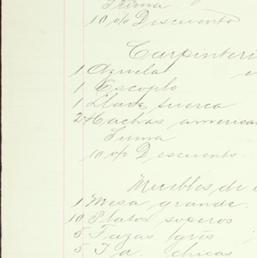 Suma
10 o/o Descuento
Carpinteri
1 Azuela
1 Escoplo
1 Llave tuerca
2 Hachas america
Suma
10 o/o Descuento.
Muebles de
1 Mesa grande
10 Platos soperos
5 Tazas
5 Id. chicas